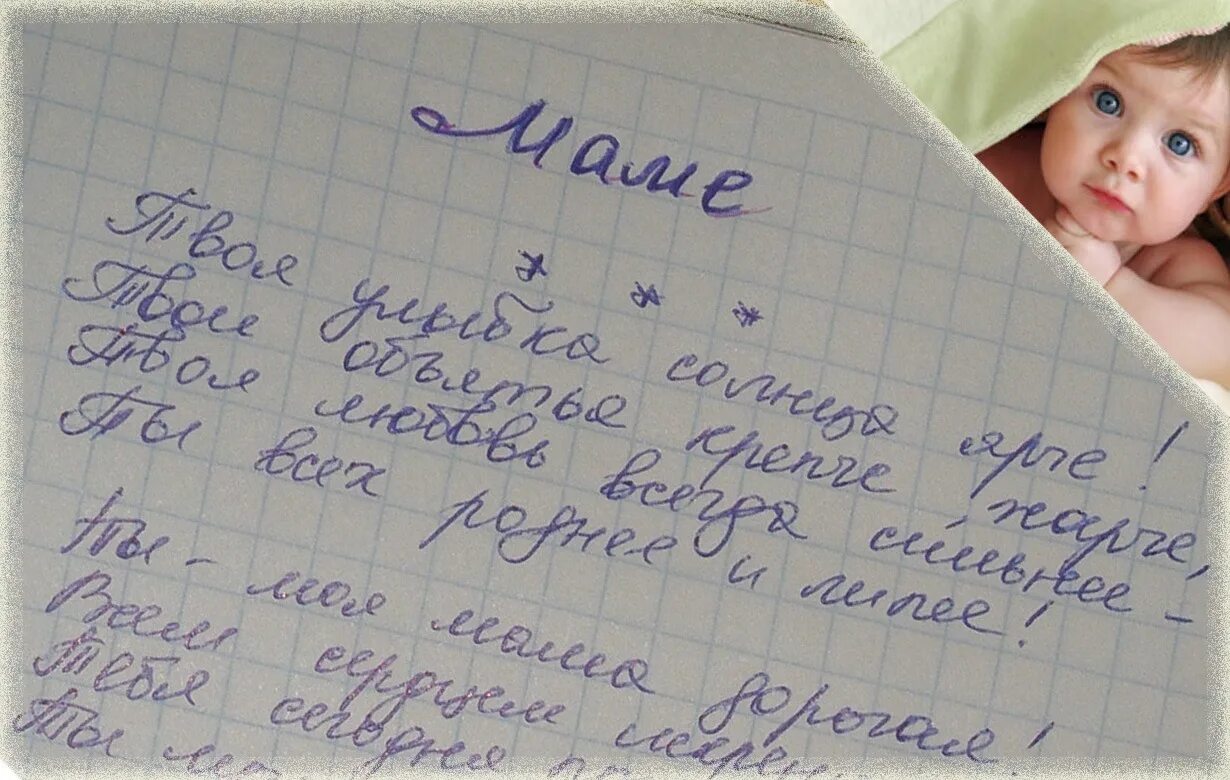 Маме
* * *
Твоя улыбка солнца ярче!
Твои объятья крепче, жарче,
Твоя любовь всегда сильнее –
Ты всех роднее и милее!
Ты – моя мама дорогая!
Всем сердцем искрен
Тебя сегодня
Ты